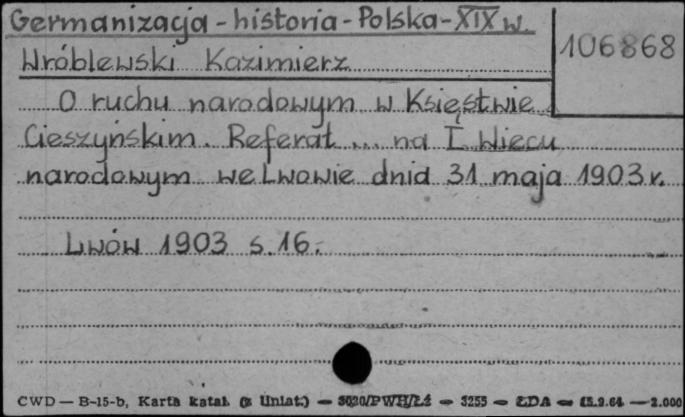 Germanizacja - historia - Polska - XIX w.
106868
Wróblewski Kazimierz
O ruchu narodowym w Księstwie
Cieszyńskim. Referat ... na I Wiecu
narodowym we Lwowie dnia 31 maja 1903 r.
Lwów 1903 s. 16.
CWD — B-15-b, Karta katal. (z Uniat.) — 3020/PWH/Łź — 3255 — ŁDA — 15.9.64 — 2.000